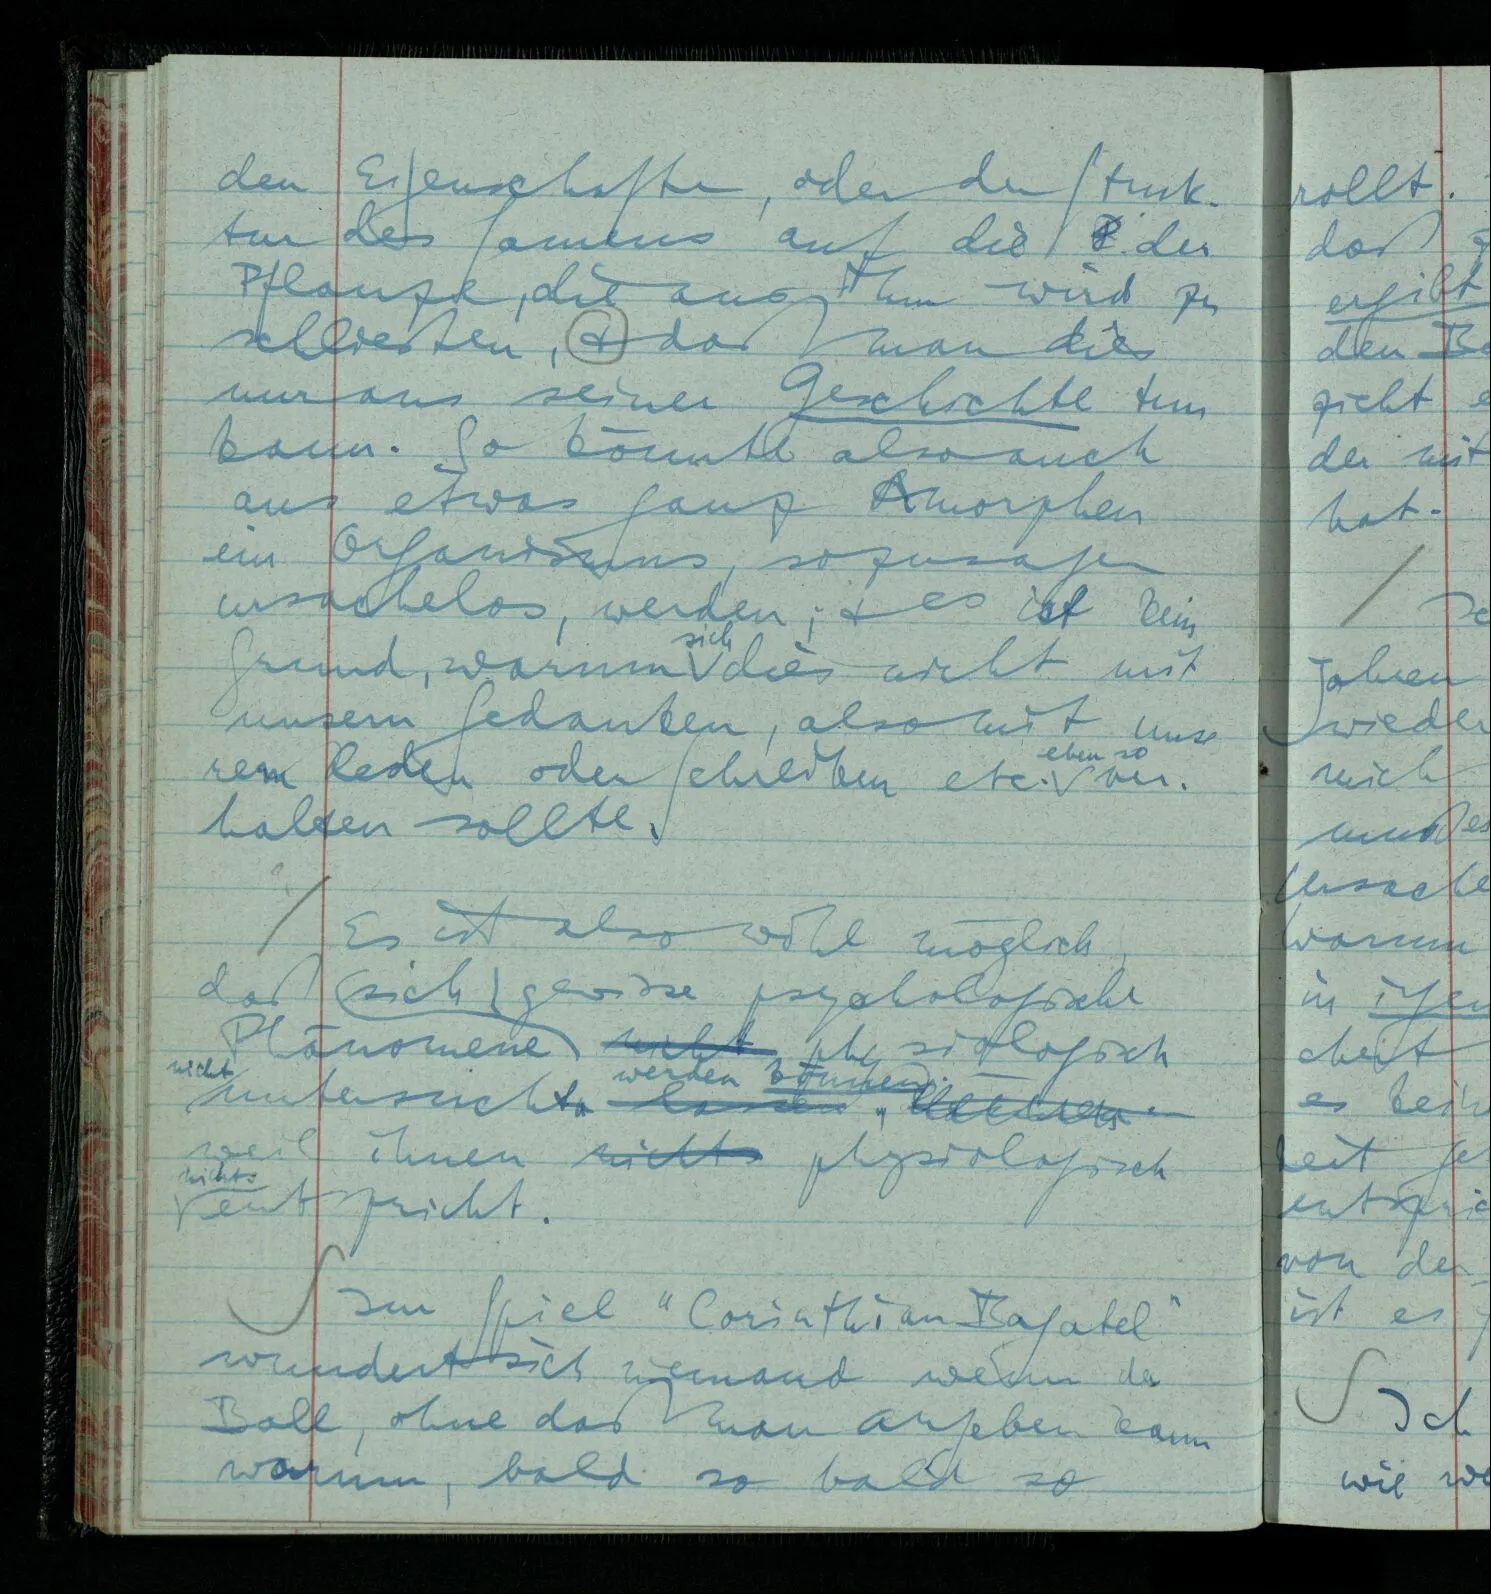 den Eigenschaften, oder der Struk-
tur des Samens auf die der
Pflanze, die aus ihm wird zu
schließen, & daß man dies
nur aus seiner Geschichte tun
kann. So könnte also auch
aus etwas ganz Amorphen
ein Organismus, sozusagen
ursachelos, werden; & es ist kein
Grund, warum sich dies nicht mit
unsern Gedanken, also mit unse
rem Reden oder Schreiben etc. eben so ver-
halten sollte.
/ Es ist also wohl möglich,
daß sich gewisse psychologische
Phänomene nicht physiologisch
nicht untersucht werden können,
weil ihnen nichts physiologisch
nichts entspricht.
∫ Im Spiel "Corinthian Bagatel"
wundert sich niemand wenn der
Ball, ohne daß man angeben kann
warum, bald so bald so
rollt.
daß
ergibt
den
zieht
der mit
hat.
/
Jahren
wieder
mich
muß es
Ursache
warum
in
cheit
es kein
heit
von der
ist es
∫ Ich
wie